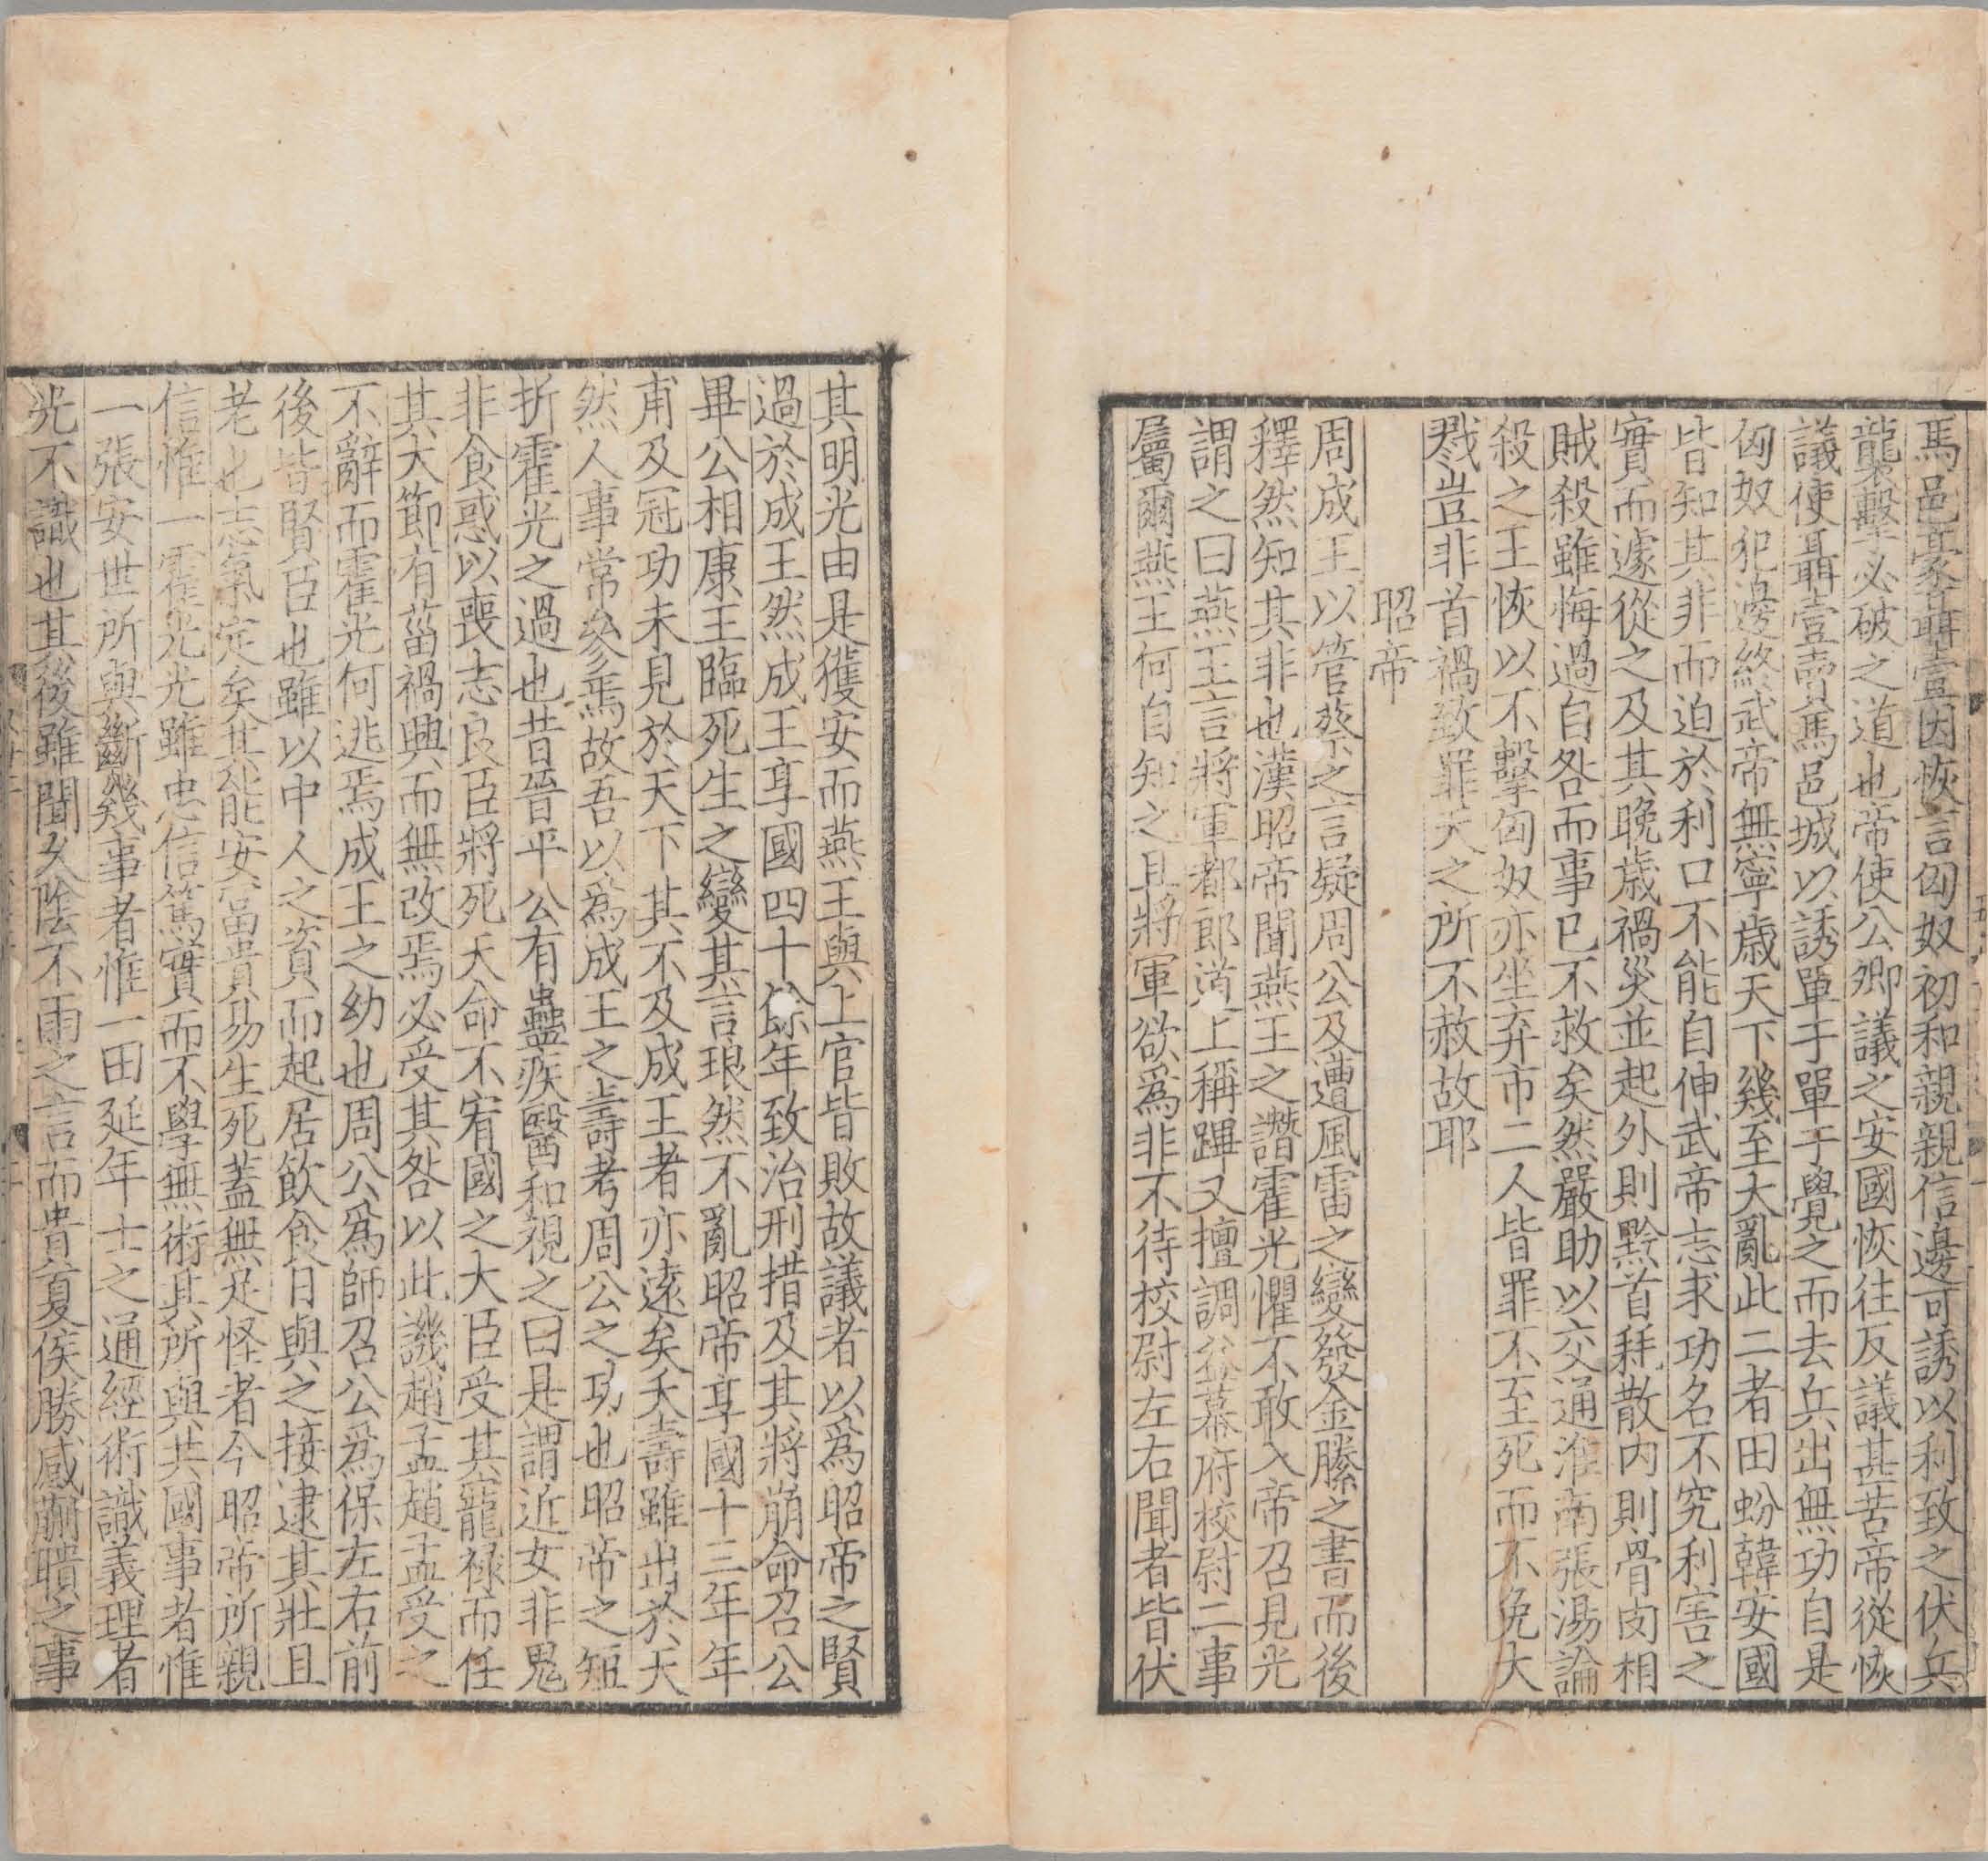 馬邑豪聶壹因恢言匈奴初和親親信邊可誘以利致之伏兵
襲擊必破之道也帝使公卿議之安國恢往反議甚苦帝從恢
議使聶壹賣馬邑城以誘單于單于覺之而去兵出無功自是
匈奴犯邊終武帝無寧歲天下幾至大亂此二者田蚡韓安國
皆知其非而迫於利口不能自伸武帝志求功名不究利害之
實而遽從之及其晚歲禍災並起外則黔首耗散內則骨肉相
賊殺雖悔過自咎而事已不救矣然嚴助以交通淮南張湯論
殺之王恢以不擊匈奴亦坐弃市二人皆罪不至死而不免大
戮豈非首禍致罪天之所不赦故耶
昭帝
周成王以管蔡之言疑周公及遭風雷之變發金縢之書而後
釋然知其非也漢昭帝聞燕王之譖霍光懼不敢入帝召見光
謂之曰燕王言將軍都郎道上稱蹕又擅調益幕府校尉二事
屬爾燕王何自知之且將軍欲為非不待校尉左右聞者皆伏
其明光由是獲安而燕王與上官皆敗故議者以為昭帝之賢
過於成王然成王享國四十餘年致治刑措及其將崩命召公
畢公相康王臨死生之變其言琅然不亂昭帝享國十三年年
甫及冠功未見於天下其不及成王者亦遠矣夭壽雖出於天
然人事常參焉故吾以為成王之壽考周公之功也昭帝之短
折霍光之過也昔晉平公有蠱疾醫和視之曰是謂近女非鬼
非食惑以喪志良臣將死天命不宥國之大臣受其寵祿而任
其大節有菑禍興而無改焉必受其咎以此譏趙孟趙孟受之
不辭而霍光何逃焉成王之幼也周公為師召公為保左右前
後皆賢臣也雖以中人之資而起居飲食日與之接逮其壯且
老也志氣定矣其能安富貴易生死蓋無足怪者今昭帝所親
信惟一霍光光雖忠信篤實而不學無術其所與共國事者惟
一張安世所與斷幾事者惟一田延年士之通經術識義理者
光不識也其後雖聞久陰不雨之言而貴夏侯勝感蒯聵之事